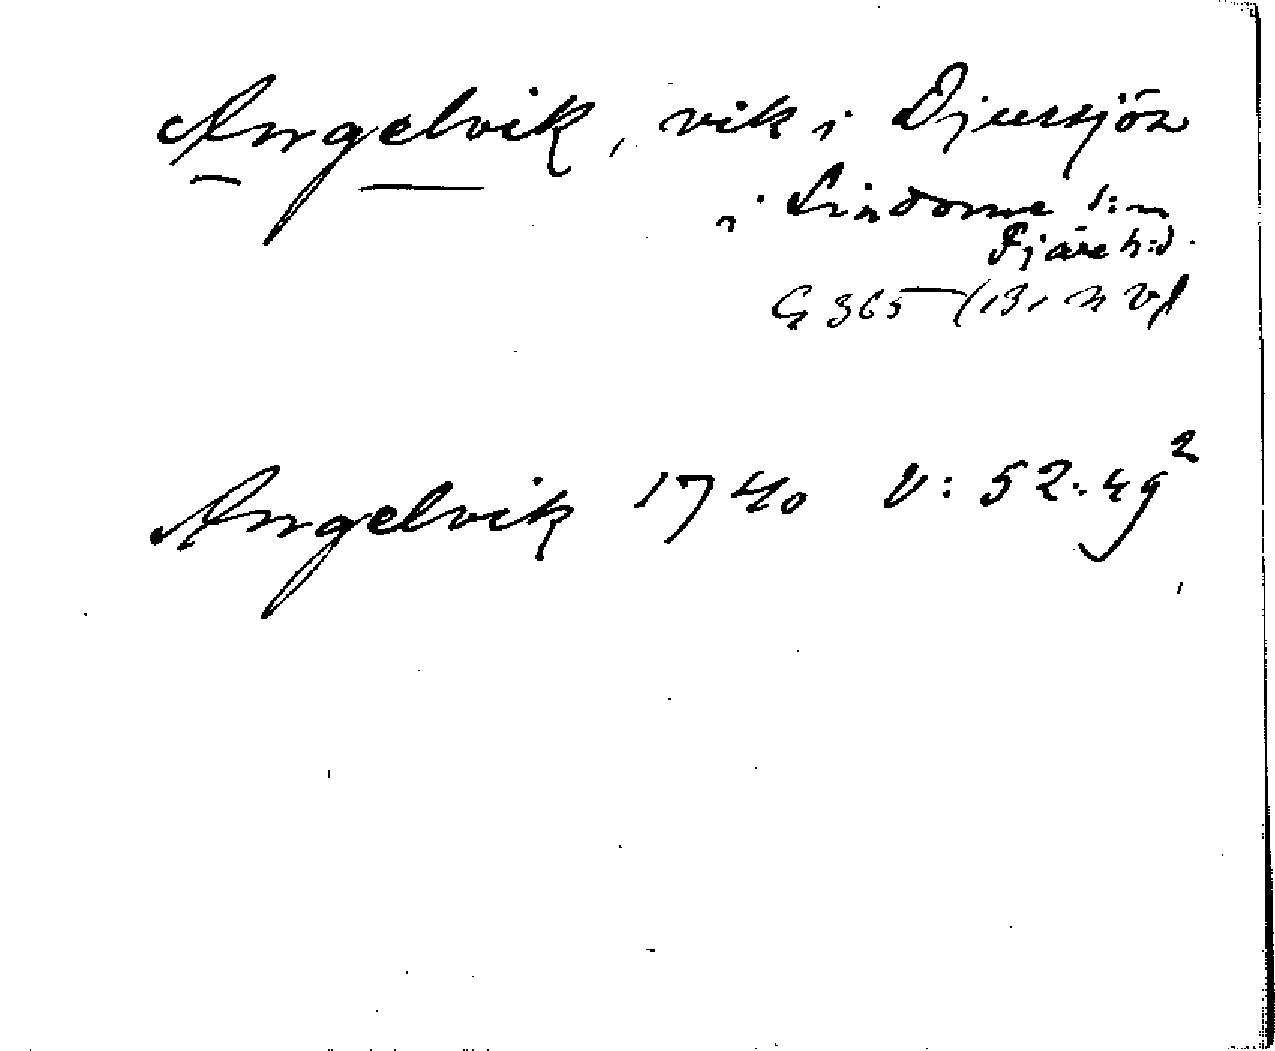 Angelvik, vik i Djursjön
i Lindome s:n
Fjäre h:d.
G 365 (13, N Vf
Angelvik 1740 V: 52. 49²